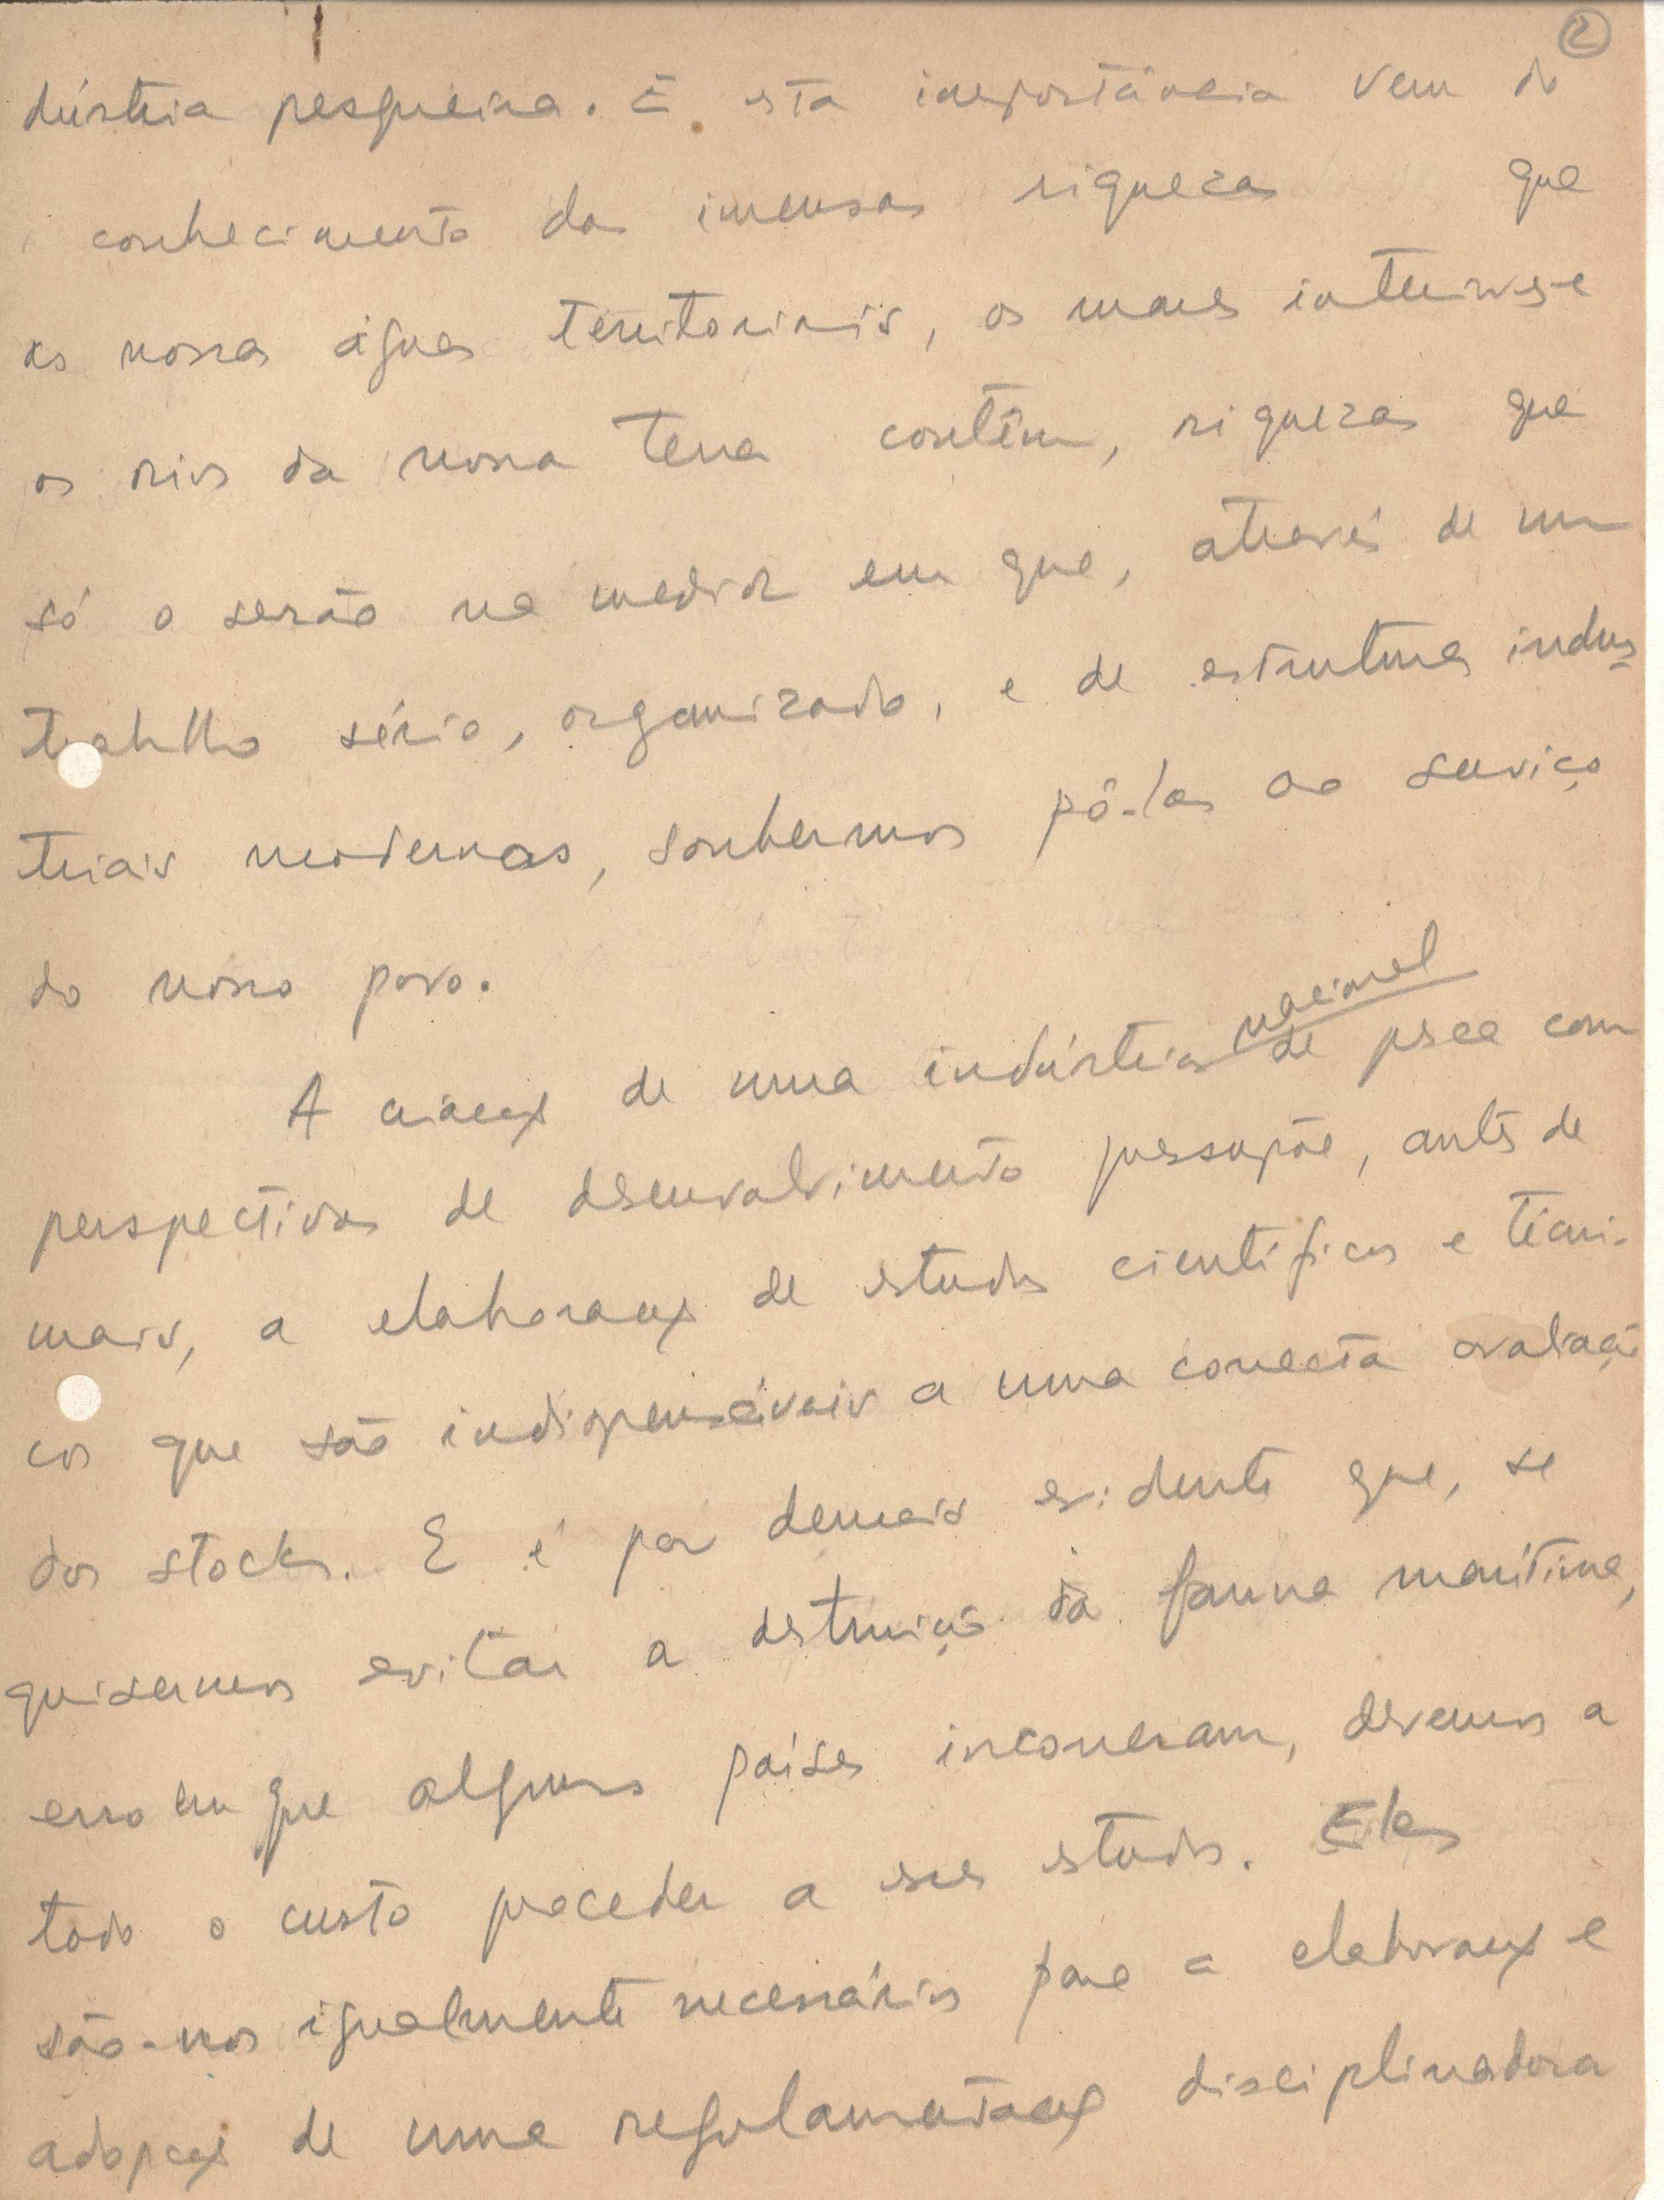 2
dústria pesqueira. E esta importância vem do
conhecimento das imensas riquezas que
as nossas águas territoriais, os mares interiores e
os rios da nossa terra contêm, riquezas que
só o serão na medida em que, através de um
trabalho sério, organizado, e de estruturas indus-
triais modernas, soubermos pô-las ao serviço
do nosso povo.
nacional
A criação de uma indústria de pesca com
perspectivas de desenvolvimento pressupõe, antes de
mais, a elaboração de estudos científicos e técni-
cos que são indispensáveis a uma correcta avaliação
dos stocks. E é por demais evidente que, se
quisermos evitar a destruição da fauna marítima,
erro em que alguns países incorreram, devemos a
todo o custo proceder a esses estudos. Eles
são-nos igualmente necessários para a elaboração e
adopção de uma regulamentação disciplinadora